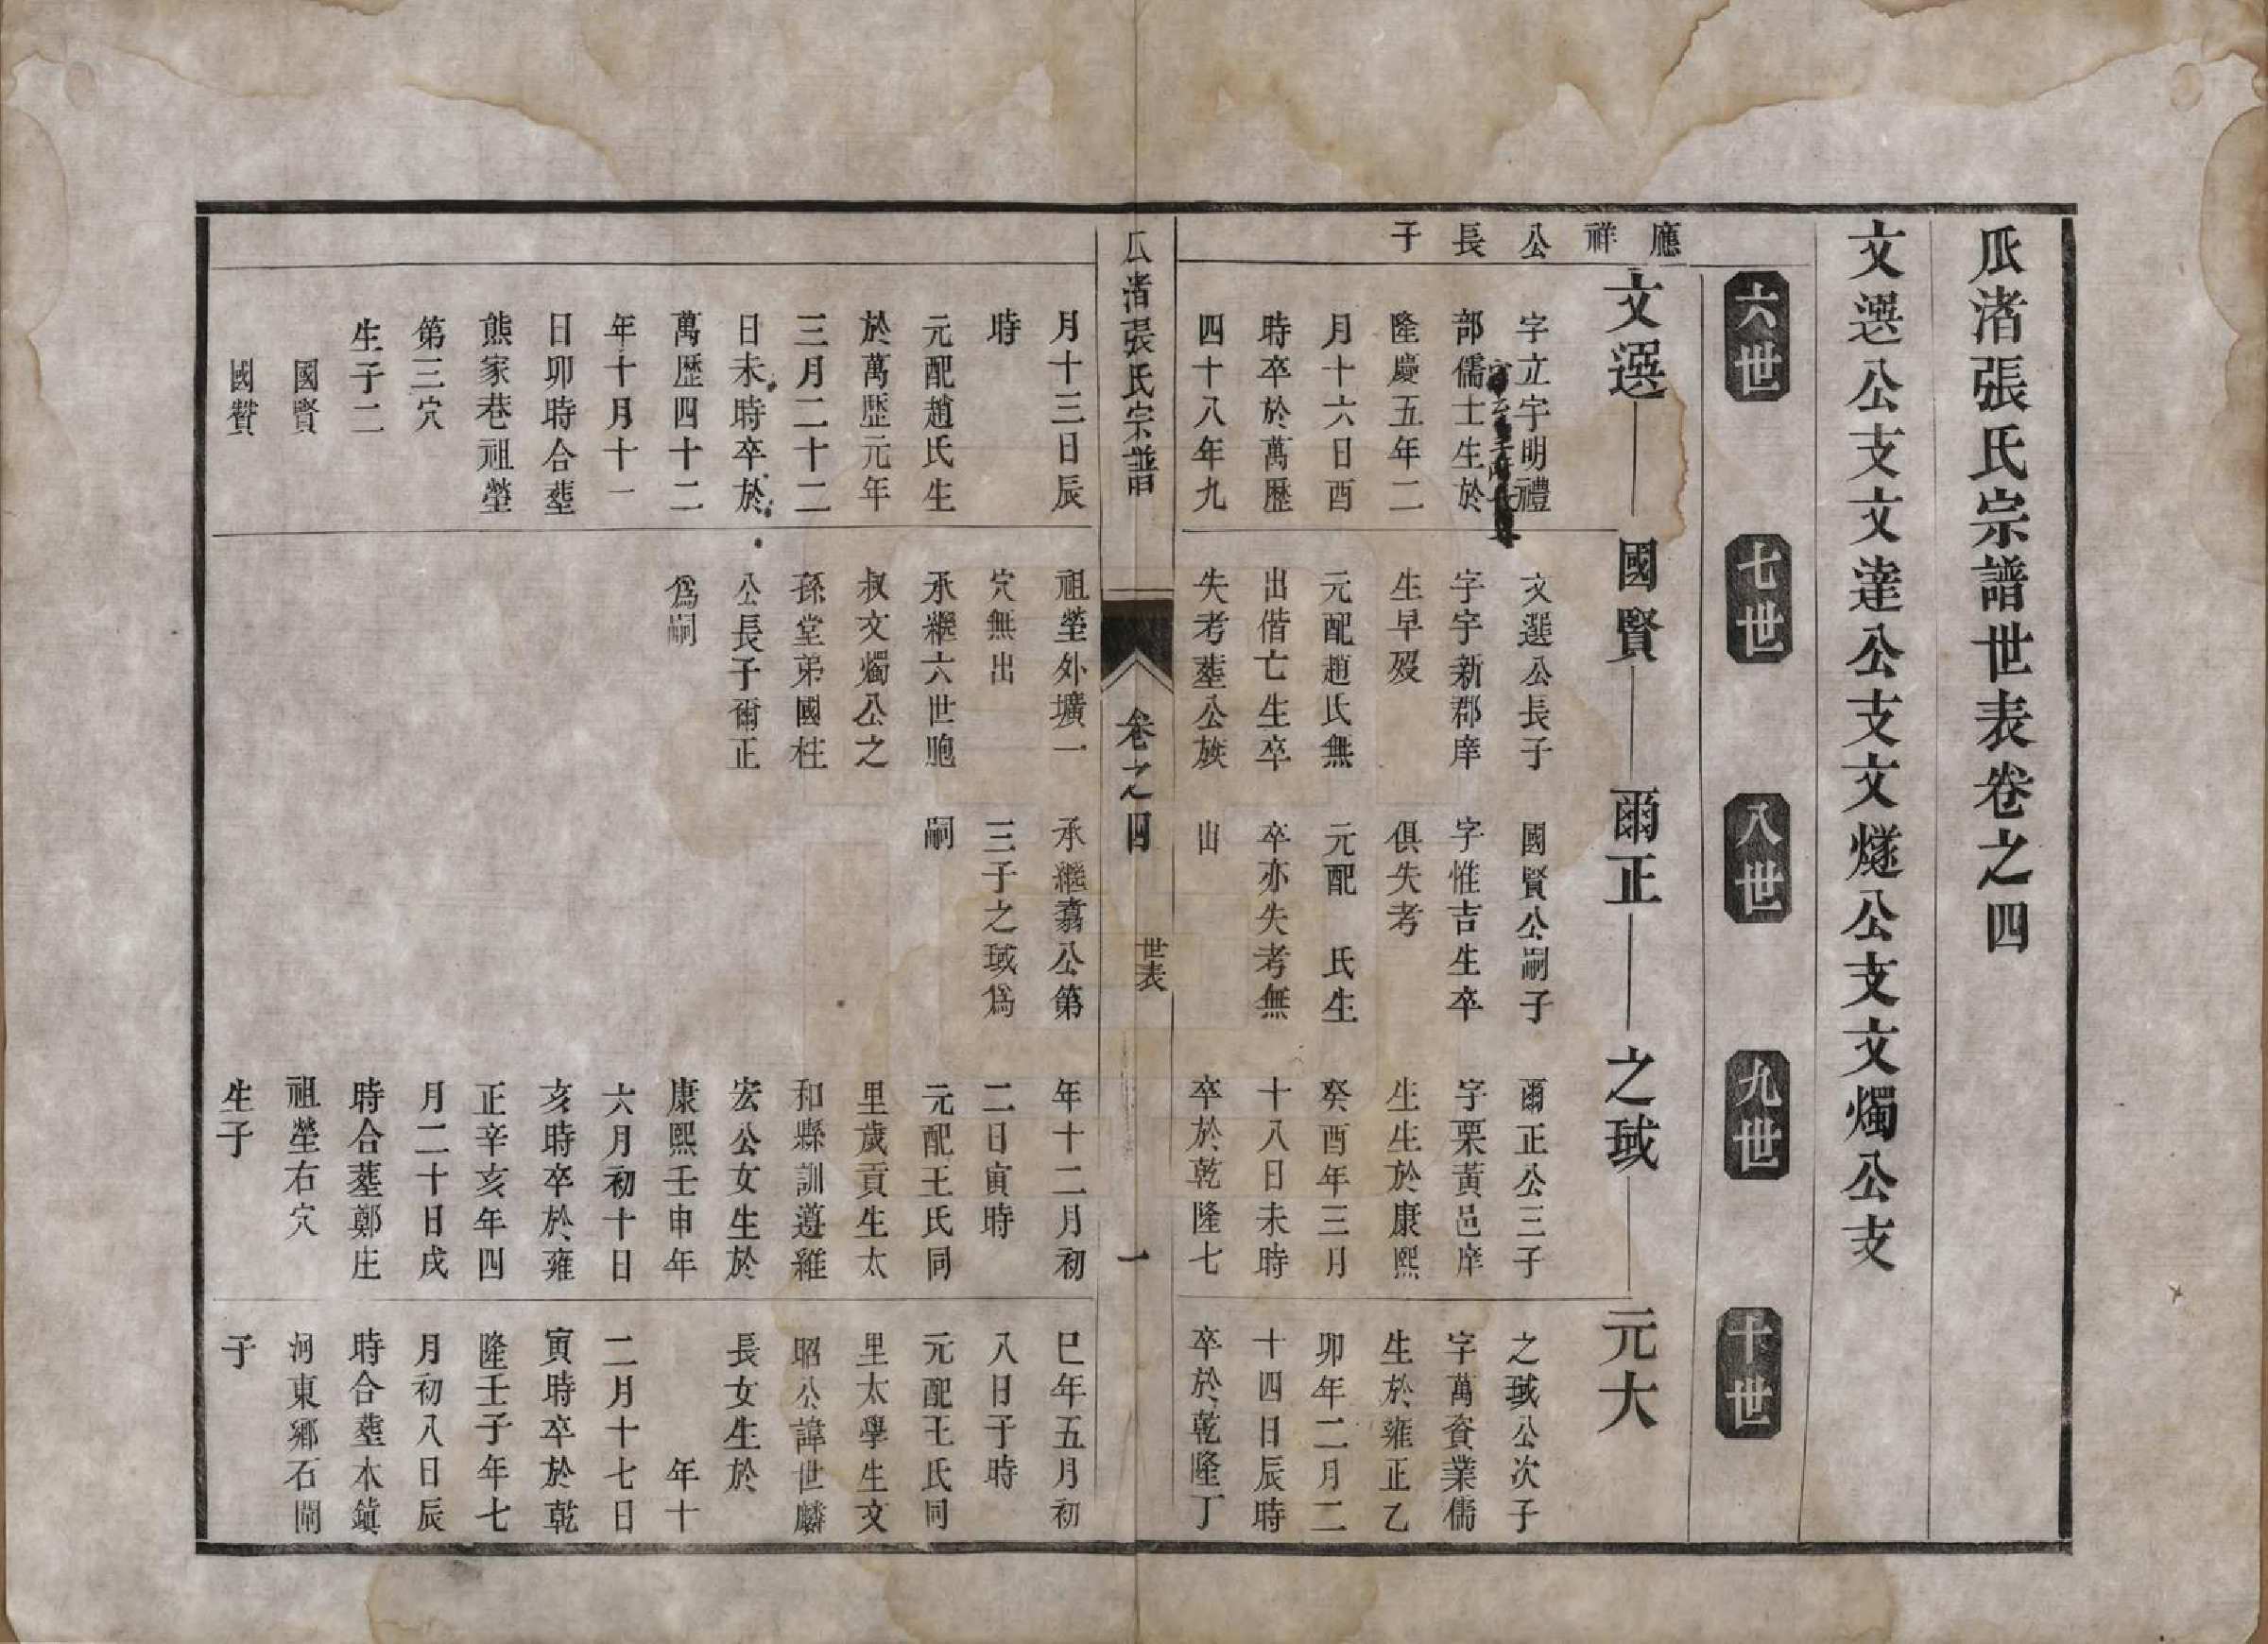 瓜渚張氏宗譜世表卷之四
文選公支文達公支文燧公支文燭公支
六世
七世
八世
九世
十世
應祥公長子
文選
國賢
爾正
之琙
元大
字立宇明禮
部儒士生於
隆慶五年二
月十六日酉
時卒於萬歷
四十八年九
文選公長子
字宇新郡庠
生早歿
元配趙氏無
出偕亡生卒
失考塟公族
國賢公嗣子
字惟吉生卒
俱失考
元配 氏生
卒亦失考無
山
爾正公三子
字栗黃邑庠
生生於康熙
癸酉年三月
十八日未時
卒於乾隆七
之琙公次子
字萬資業儒
生於雍正乙
卯年二月二
十四日辰時
卒於乾隆丁
瓜渚張氏宗譜
卷之四
世表
一
月十三日辰
時
元配趙氏生
於萬歷元年
三月二十二
日未時卒於
萬歷四十二
年十月十一
日卯時合塟
熊家巷祖塋
第三穴
生子二
國賢
國贊
祖塋外壙一
穴無出
承繼六世胞
叔文燭公之
孫堂弟國柱
公長子爾正
為嗣
承繼翥公第
三子之琙為
嗣
年十二月初
二日寅時
元配王氏同
里歲貢生太
和縣訓遵維
宏公女生於
康熙壬申年
六月初十日
亥時卒於雍
正辛亥年四
月二十日戌
時合塟鄭庄
祖塋右穴
生子
巳年五月初
八日子時
元配王氏同
里太學生文
昭公諱世麟
長女生於
年十
二月十七日
寅時卒於乾
隆壬子年七
月初八日辰
時合塟木鎮
河東鄉石閘
子